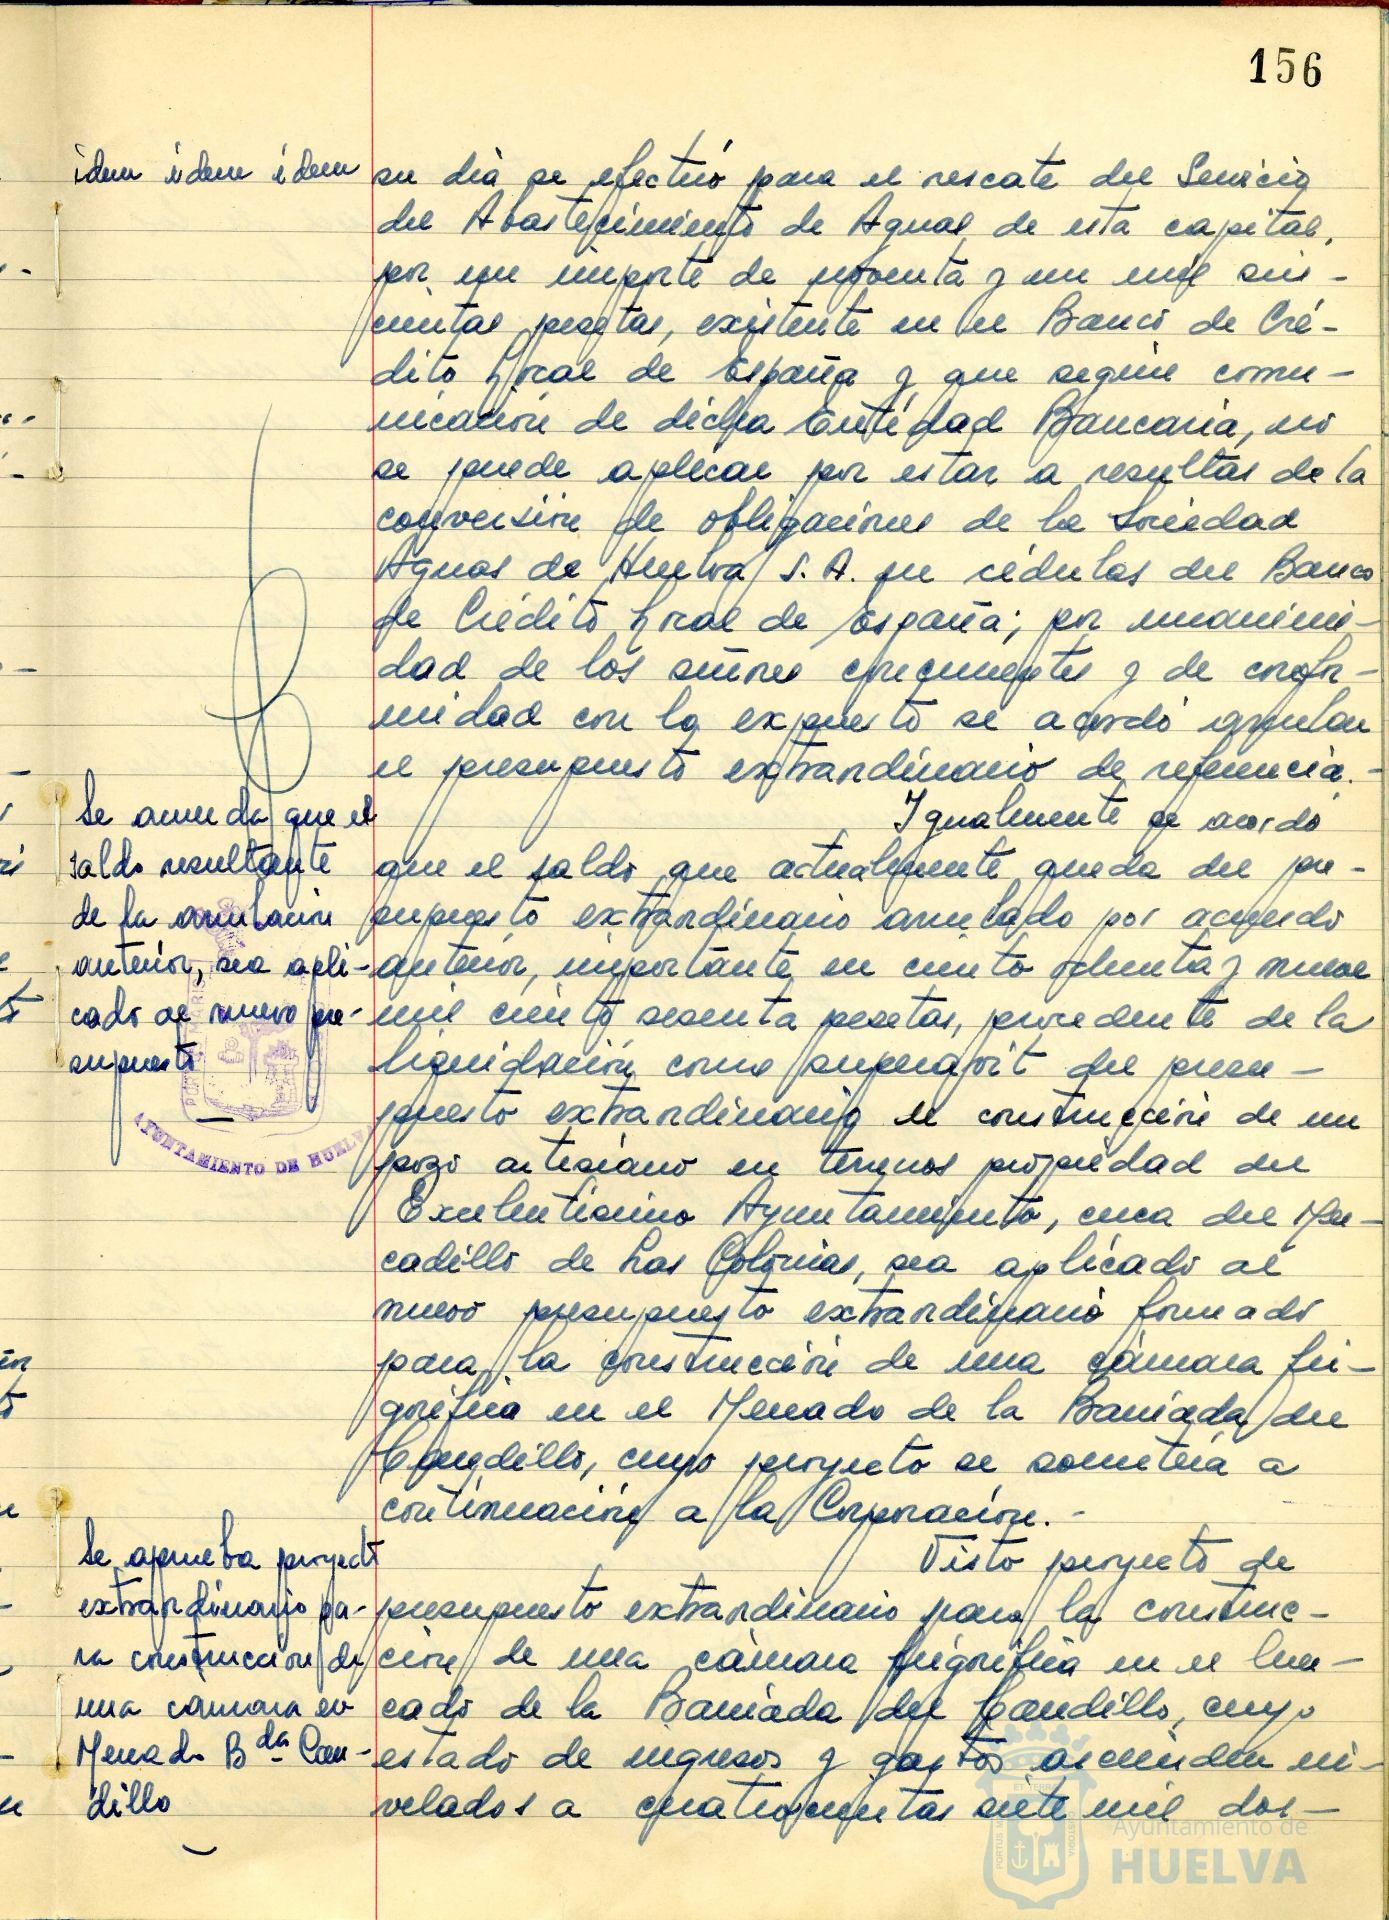 156
idem idem idem
su dia se efectuó para el rescate del Servicio
del Abastecimiento de Aguas de esta capital,
por un importe de noventa y un mil seis-
cientas pesetas, existente en el Banco de Cré-
dito Local de España y que según comu-
nicación de dicha Entidad Bancaria, no
se puede aplicar por estar a resultas de la
conversión de obligaciones de la Sociedad
Aguas de Huelva S. A. en cédulas del Banco
de Crédito Local de España; por unanimi-
dad de los señores concurrentes y de confor-
midad con lo expuesto se acordó anular
el presupuesto extraordinario de referencia.-
Se acuerda que el
saldo resultante
de la anulación
anterior, sea apli-
cado al nuevo pre-
supuesto
Igualmente se acordó
que el saldo que actualmente queda del pre-
supuesto extraordinario anulado por acuerdo
anterior, importante en ciento ochenta y nueve
mil ciento sesenta pesetas, procedente de la
liquidación como superávit del presu-
puesto extraordinario de construcción de un
pozo artesiano en terrenos propiedad del
Excelentísimo Ayuntamiento, cerca del Mer-
cadillo de Las Colonias, sea aplicado al
nuevo presupuesto extraordinario formado
para la construcción de una cámara fri-
gorífica en el Mercado de la Barriada del
Caudillo, cuyo proyecto se sometería a
continuación a la Corporación.-
AYUNTAMIENTO DE HUELVA
Se aprueba proyecto
extraordinario pa-
ra construcción de
una cámara en
Mercado Bda Cau-
dillo
Visto proyecto de
presupuesto extraordinario para la construc-
ción de una cámara frigorífica en el Mer-
cado de la Barriada del Caudillo, cuyo
estado de ingresos y gastos ascienden ni-
velados a cuatrocientas siete mil dos-
Ayuntamiento de
HUELVA